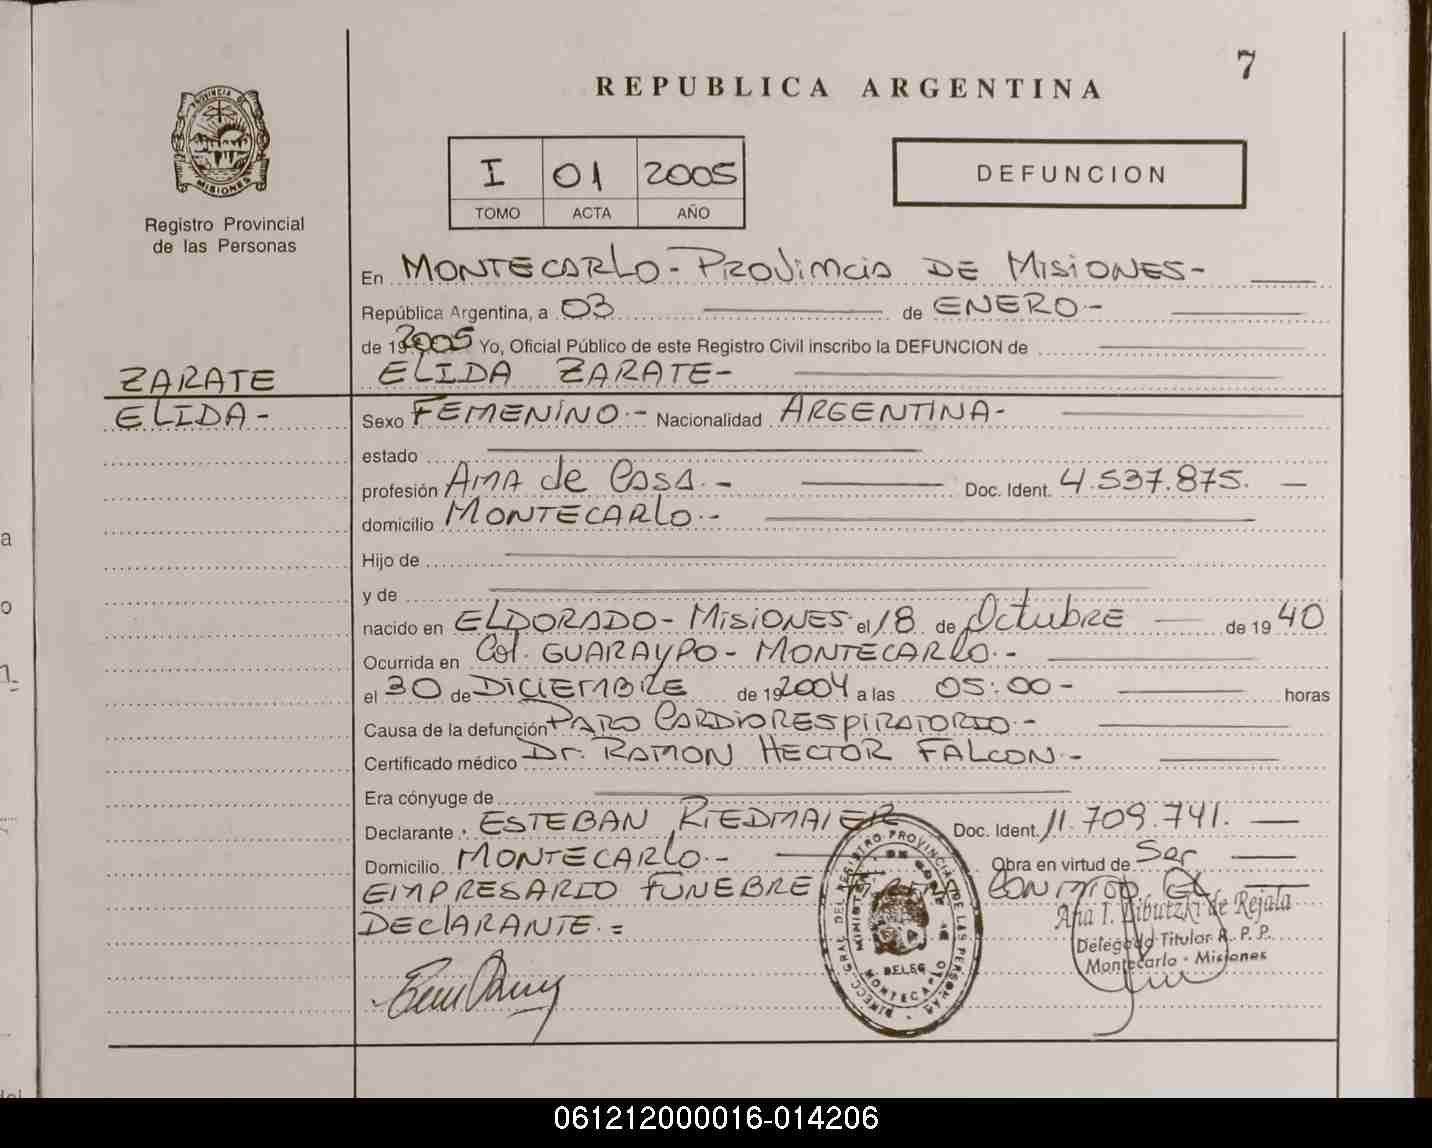 7
REPUBLICA ARGENTINA
PROVINCIA D
MISIONES
Registro Provincial
de las Personas
I 01 2005
TOMO ACTA AÑO
DEFUNCION
En MONTECARLO - PROVINCIA DE MISIONES -
República Argentina, a 03 de ENERO -
de 19 2005 Yo, Oficial Público de este Registro Civil inscribo la DEFUNCION de
ZARATE
ELIDA ZARATE -
ELIDA -
Sexo FEMENINO. - Nacionalidad ARGENTINA -
estado
profesión AMA de CASA. - Doc. Ident. 4.537.875. -
domicilio MONTECARLO. -
Hijo de
y de
nacido en ELDORADO - MISIONES el 18 de Octubre de 19 40
Ocurrida en Col. GUARAYPO - MONTECARLO. -
el 30 de DICIEMBRE de 19 2004 a las 05:00 - horas
Causa de la defunción PARO CARDIORESPIRATORIO. -
Certificado médico Dr. RAMON HECTOR FALCON. -
Era cónyuge de
Declarante. ESTEBAN RIEDMAIER Doc. Ident. 11.709.741. -
Domicilio MONTECARLO. - Obra en virtud de Ser
EMPRESARIO FUNEBRE
DECLARANTE. =
DIRECC. GRAL. DEL REGISTRO PROVINCIAL DE LAS PERSONAS
DELEG
MONTECARLO
Ana I. de Rejala
Delegado Titular R. P. P.
Montecarlo - Misiones
a
o
061212000016-014206